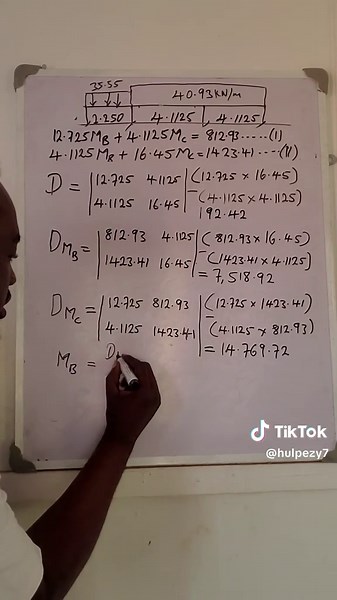 35.55
40.93KN/m
2.250 4.1125 4.1125
12.725MB + 4.1125Mc = 812.93 .....(I)
4.1125MB + 16.45Mc = 1423.41 ....(II)
D = | 12.725 4.1125 | (12.725 x 16.45)
4.1125 16.45 | -(4.1125 x 4.1125)
192.42
DMB = | 812.93 4.1125 | (812.93 x 16.45)
1423.41 16.45 | -(1423.41 x 4.1125)
= 7,518.92
DMc = | 12.725 812.93 | (12.725 x 1423.41)
4.1125 1423.41 | -(4.1125 x 812.93)
= 14.769.72
MB = D
TikTok
@hulpezy7